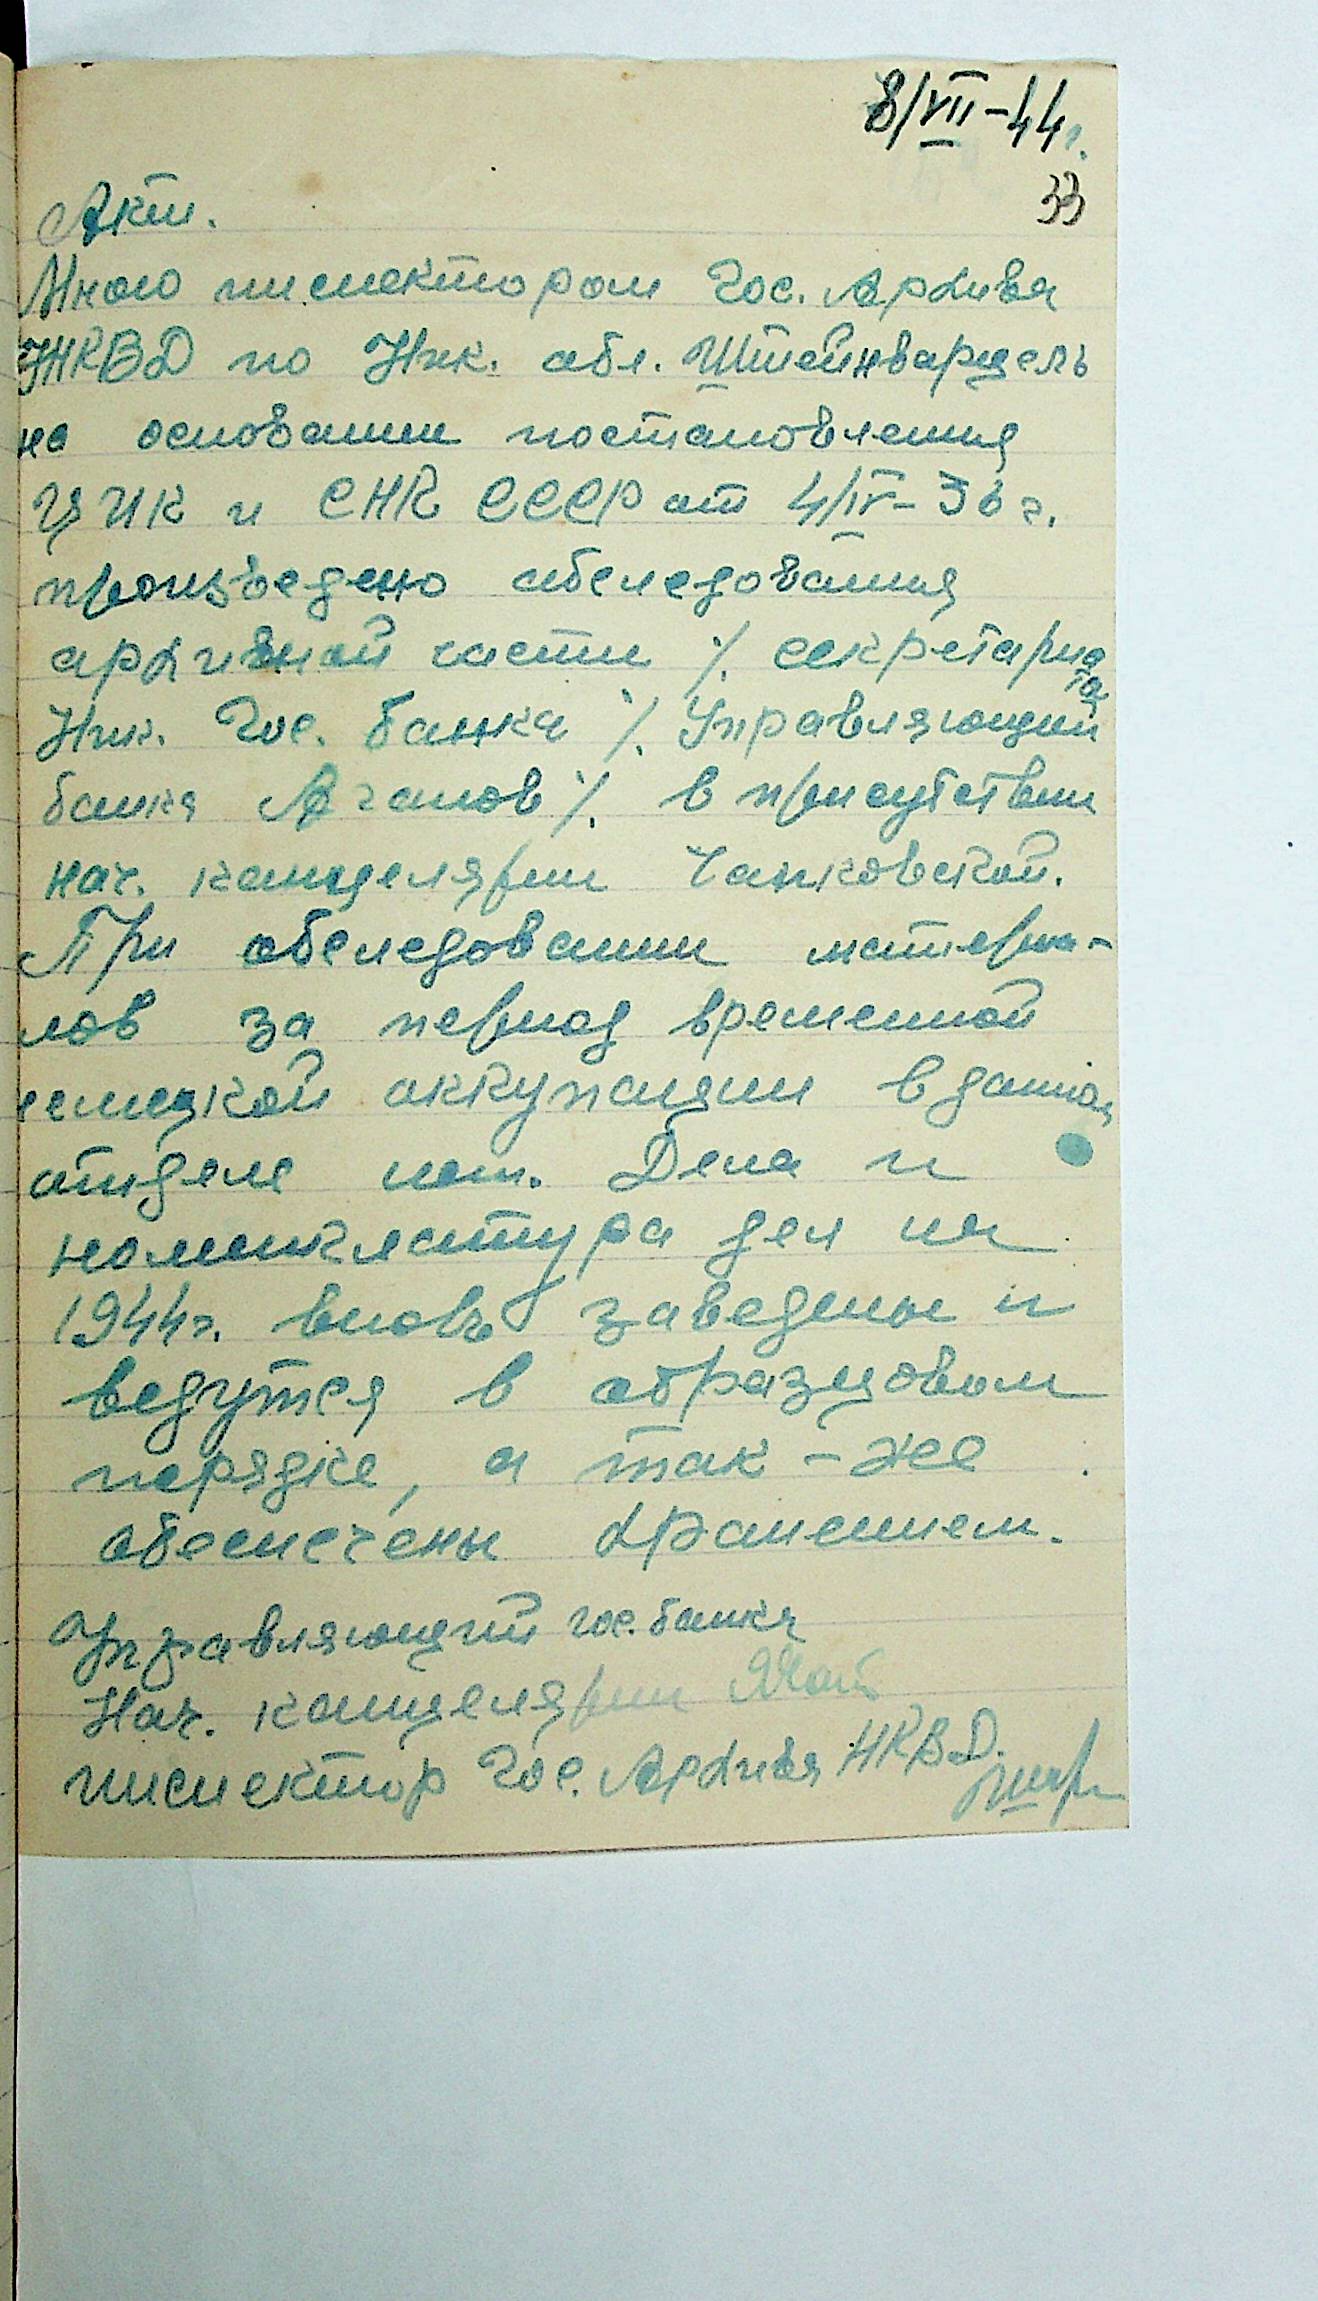 8/VII-44г.
33
Акт.
Мною инспектором Гос. Архива
УНКВД по Ник. обл. Штейнварцель
на основании постановления
ЦИК и СНК СССР от 4/IV-36 г.
произведено обследования
архивной части ./. секретариата
Ник. Гос. банка ./. Управляющий
банка Агапов ./. в присутствии
нач. канцелярии Чапковской.
При обследовании материа-
лов за период временной
немецкой оккупации в данном
отделе нет. Дела и
номенклатура дел на
1944г. вновь заведены и
ведутся в образцовом
порядке, а так-же
обеспечены хранением.
Управляющий гос. банка
Нач. канцелярии
инспектор Гос. Архива НКВД.